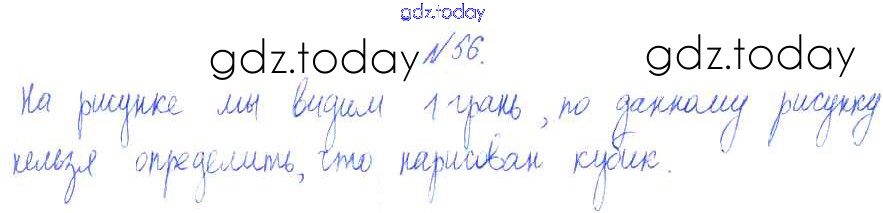 gdz.today
gdz.today №56. gdz.today
На рисунке мы видим 1 грань, по данному рисунку
нельзя определить, что нарисован кубик.